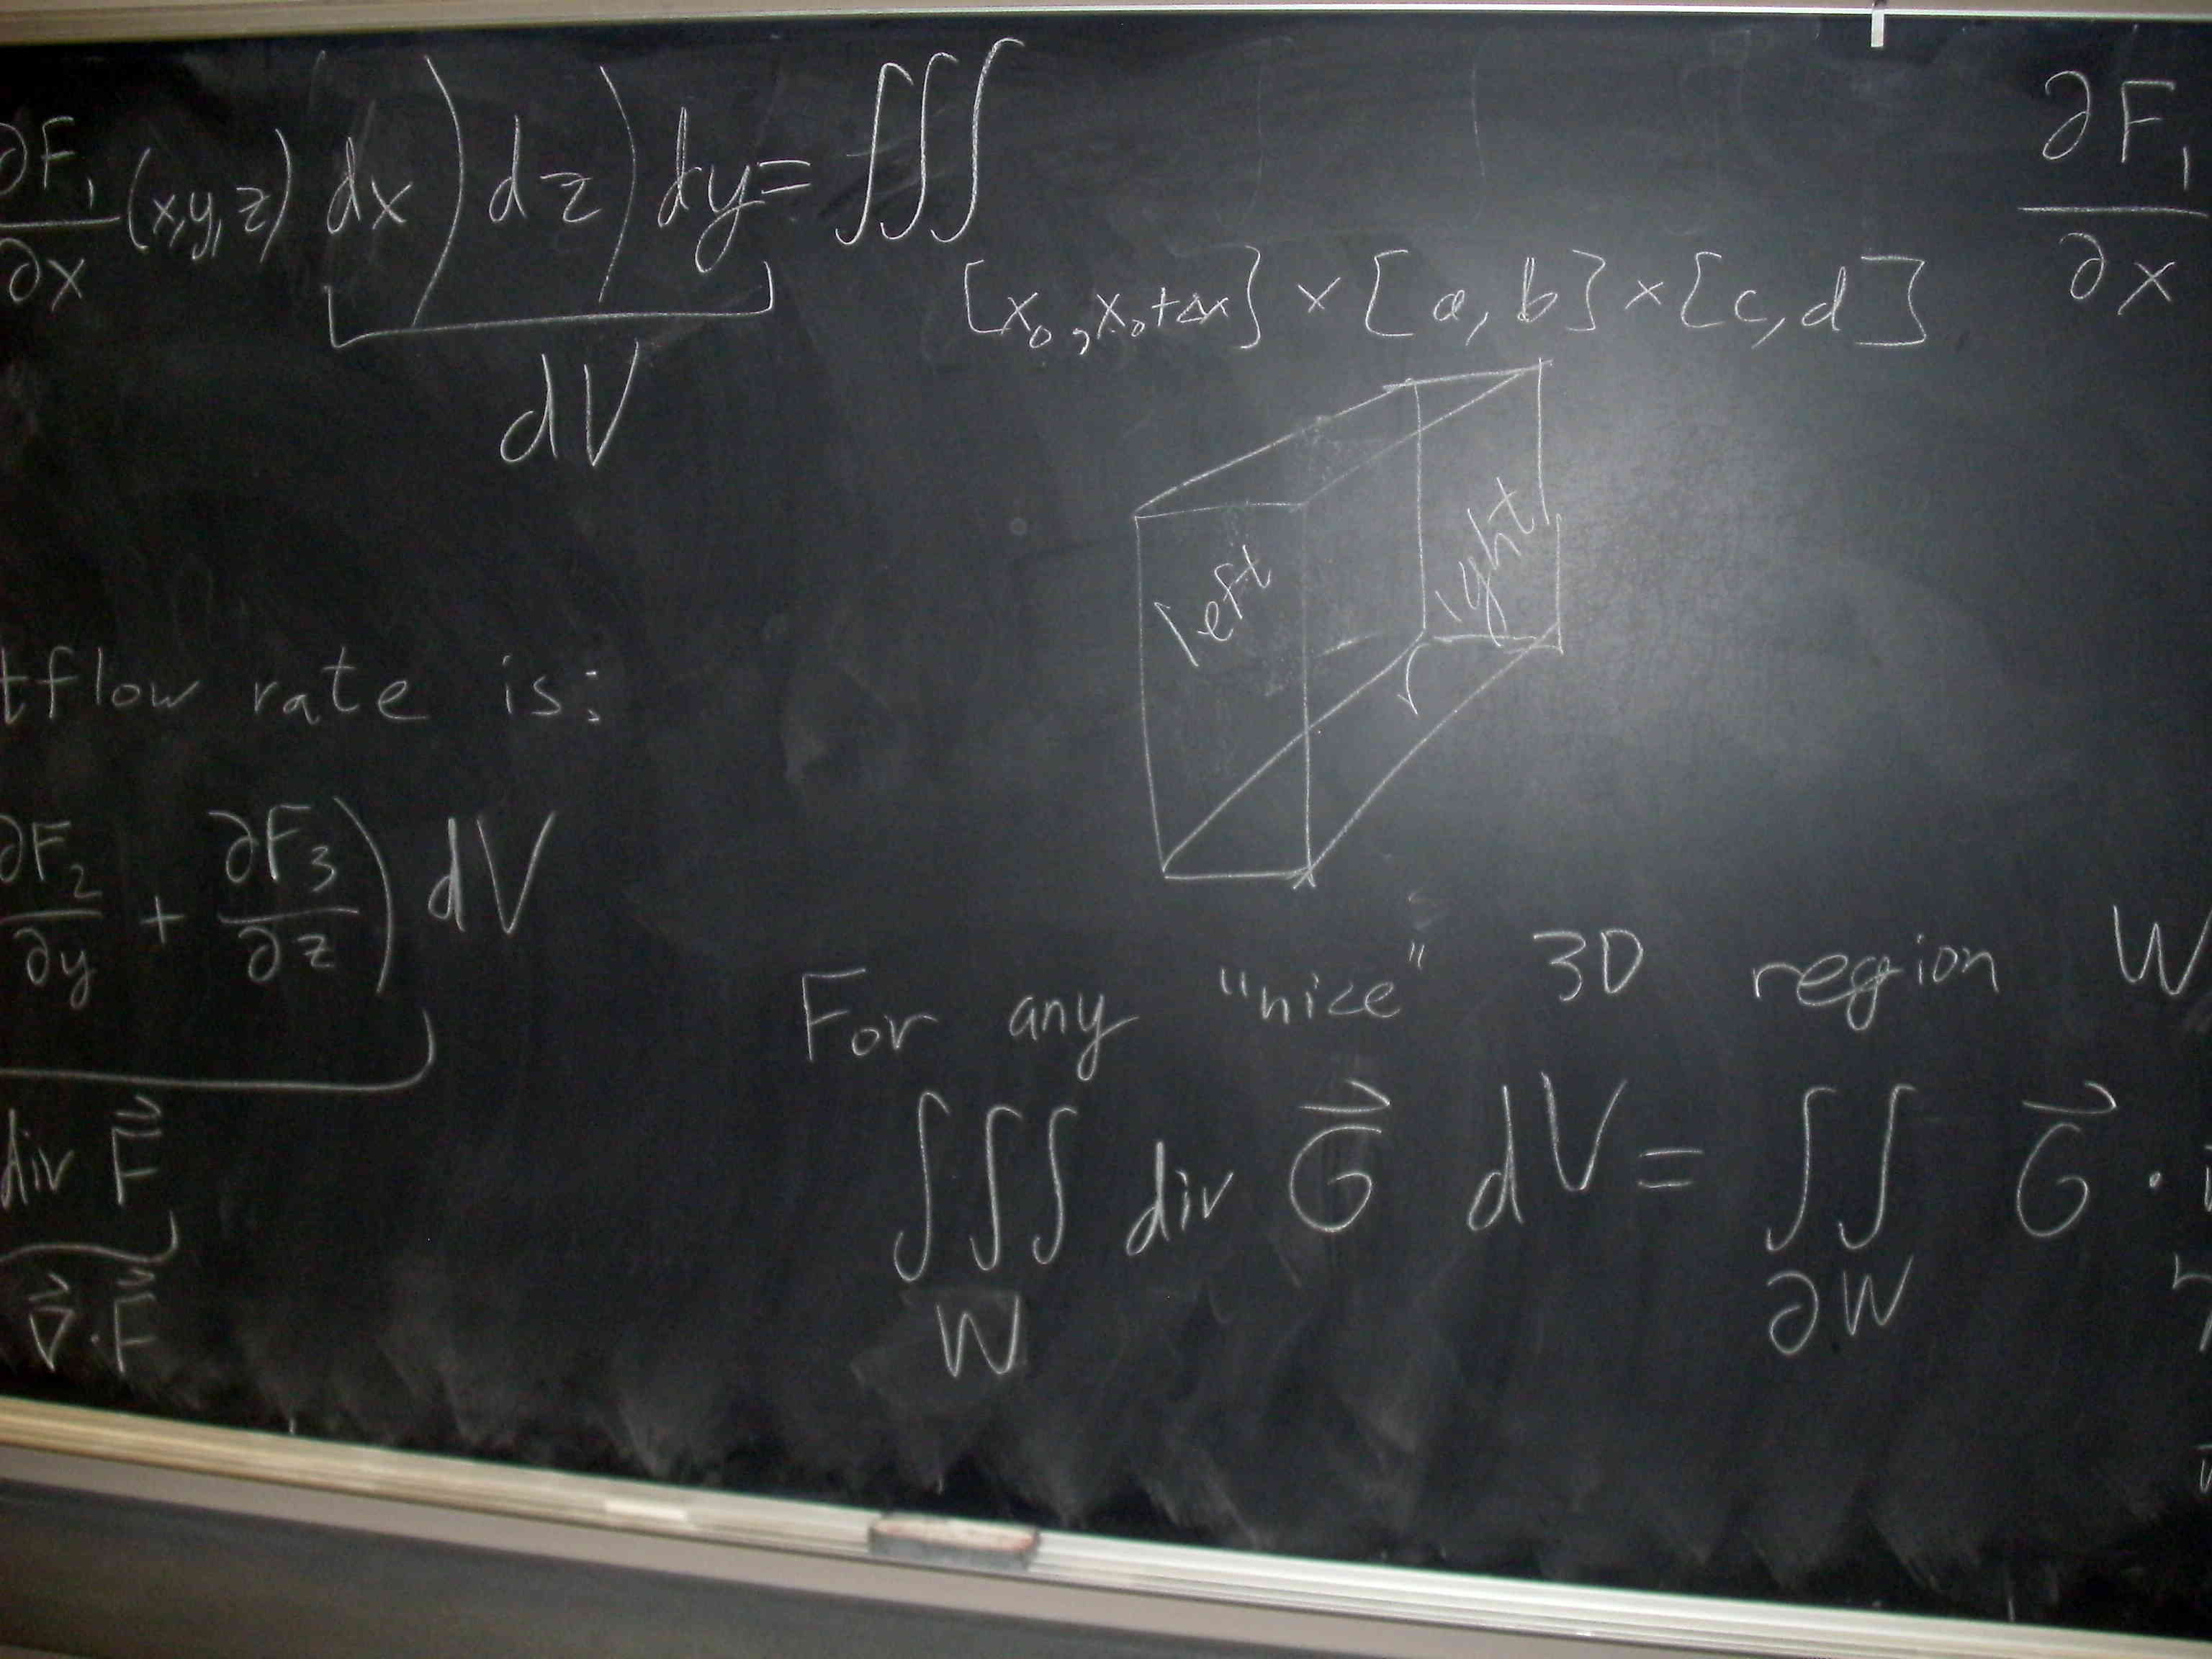 ∂F₁/∂x (x,y,z) dx) dz) dy = ∭ [x₀, x₀+Δx] × [a, b] × [c, d] ∂F₁/∂x
dV
left
right
tflow rate is:
∂F₂/∂y + ∂F₃/∂z) dV
div F⃗
∇⃗·F⃗
For any "nice" 3D region W
∭ div G⃗ dV = ∬ G⃗ ·
W ∂W